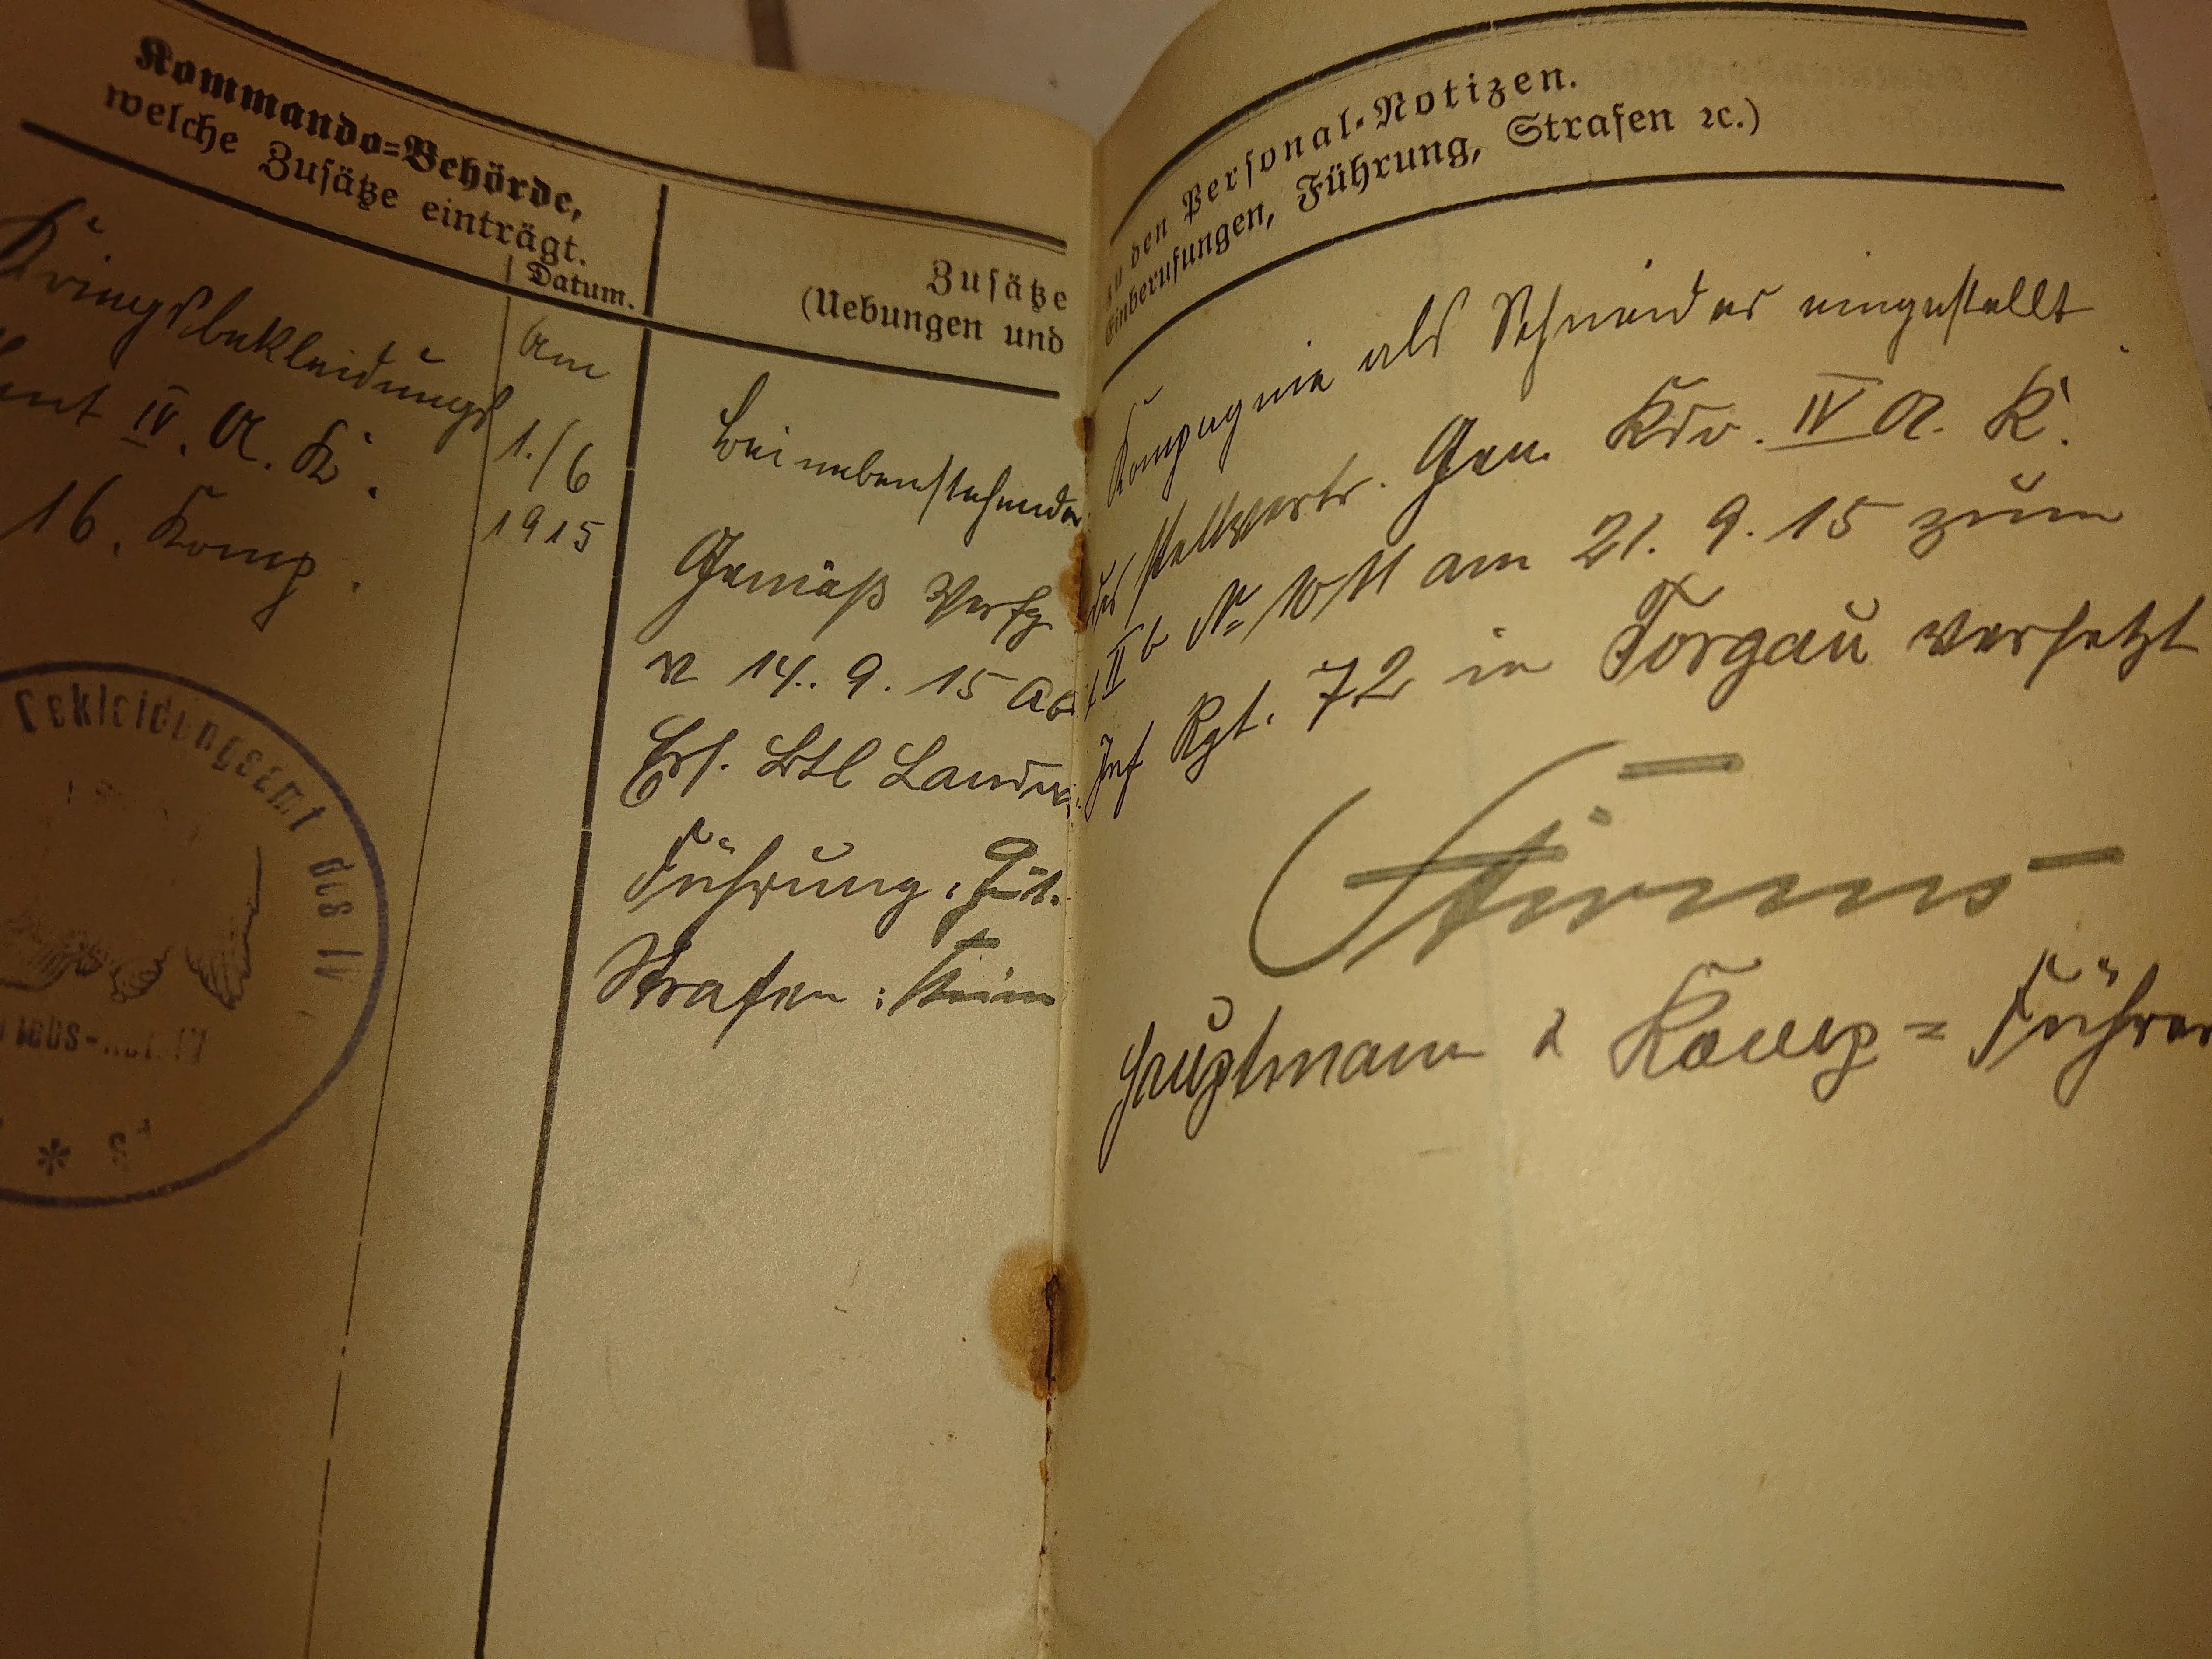 Kommando-Behörde,
welche Zusätze einträgt.
Datum.
Kriegsbekleidungs
amt IV. A. K.
16. Komp.
Am
1./6
1915
Bekleidungsamt des IV
Zusätze
(Uebungen und
Bei nebenstehender
Gemäß Verfg
v 14. 9. 15 Ab
Ers. Btl Landw.
Führung: Gut.
Strafen: Keine
zu den Personal-Notizen.
Einberufungen, Führung, Strafen ꝛc.)
Kompagnie als Schneider eingestellt
des stellvertr. Gen. Kdo. IV A. K.
II b № am 21. 9. 15 zum
Inf Rgt. 72 in Torgau versetzt
Hauptmann & Komp = Führer